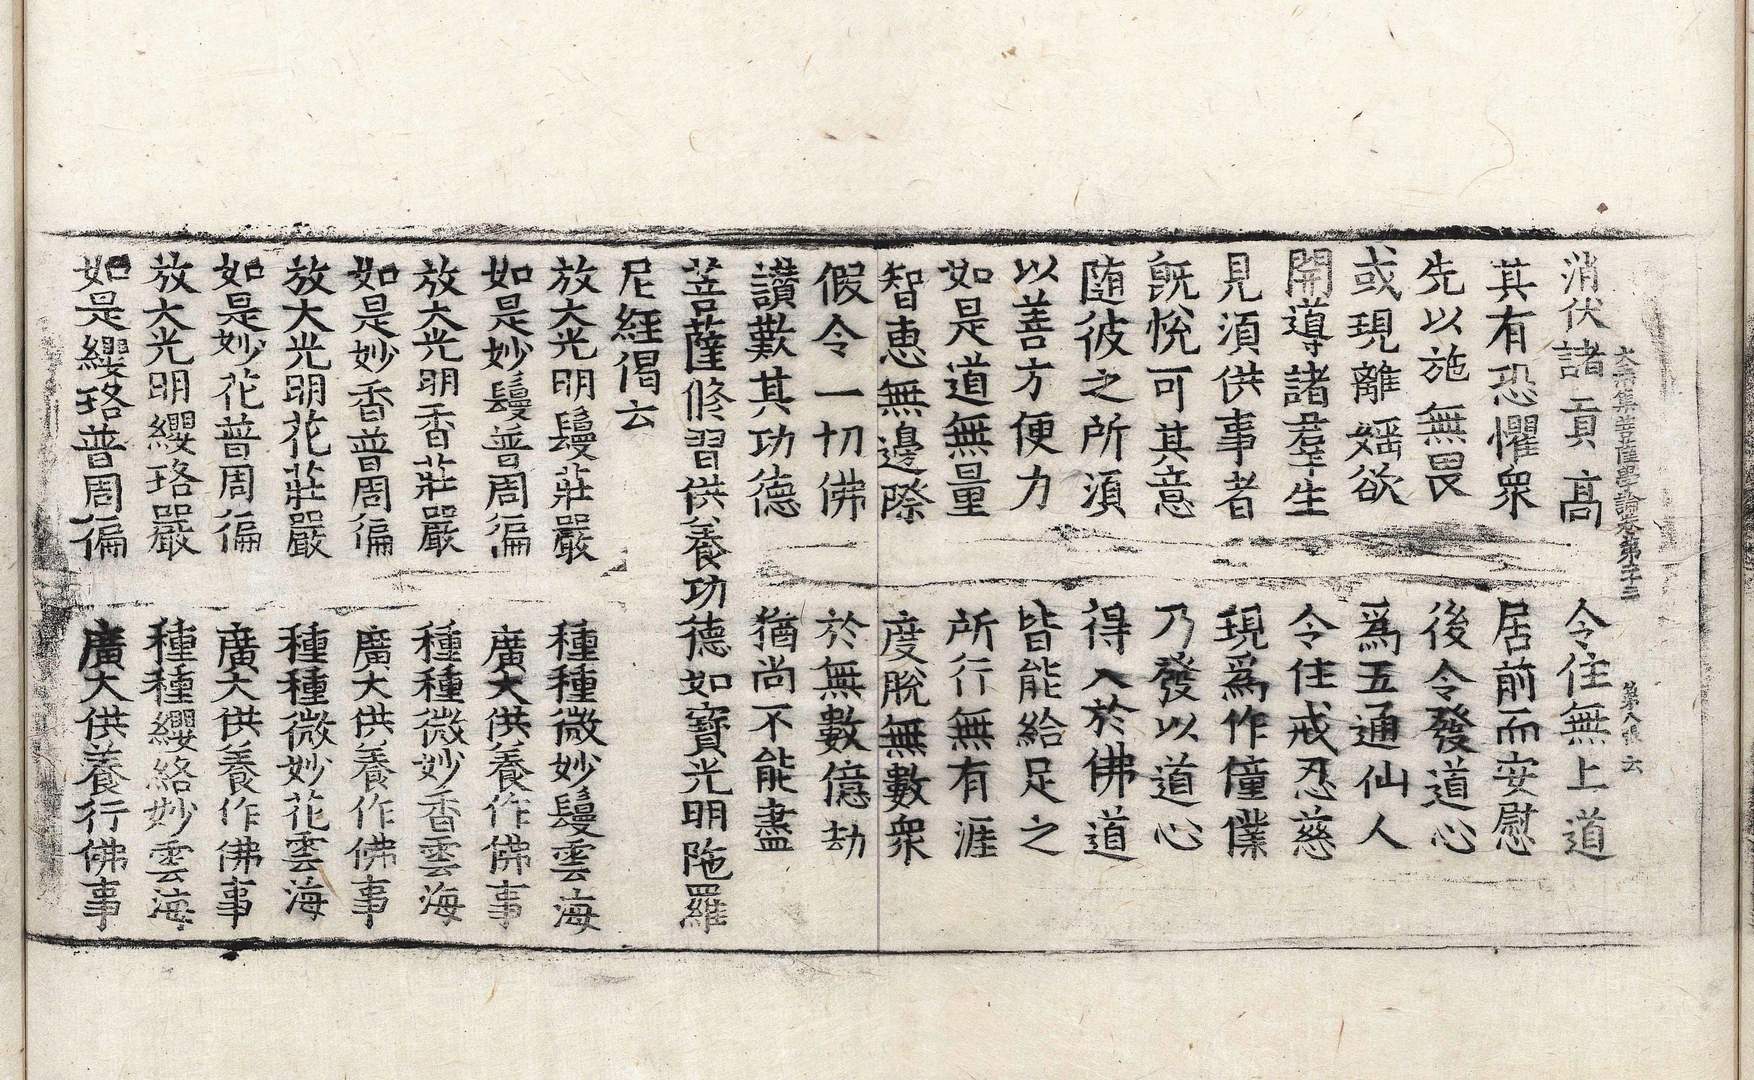 大乘集菩薩學論卷第二十三 第八張 云
消伏諸貢高 令住無上道
其有恐懼衆 居前而安慰
先以施無畏 後令發道心
或現離婬欲 爲五通仙人
開導諸羣生 令住戒忍慈
見須供事者 現爲作僮僕
旣悅可其意 乃發以道心
隨彼之所須 得入於佛道
以善方便力 皆能給足之
如是道無量 所行無有涯
智惠無邊際 度脫無數衆
假令一切佛 於無數億劫
讃歎其功德 猶尚不能盡
菩薩修習供養功德如寶光明陁羅
尼經偈云
放大光明鬘莊嚴 種種微妙鬘雲海
如是妙鬘普周徧 廣大供養作佛事
放大光明香莊嚴 種種微妙香雲海
如是妙香普周徧 廣大供養作佛事
放大光明花莊嚴 種種微妙花雲海
如是妙花普周徧 廣大供養作佛事
放大光明纓珞嚴 種種纓絡妙雲海
如是纓珞普周徧 廣大供養行佛事